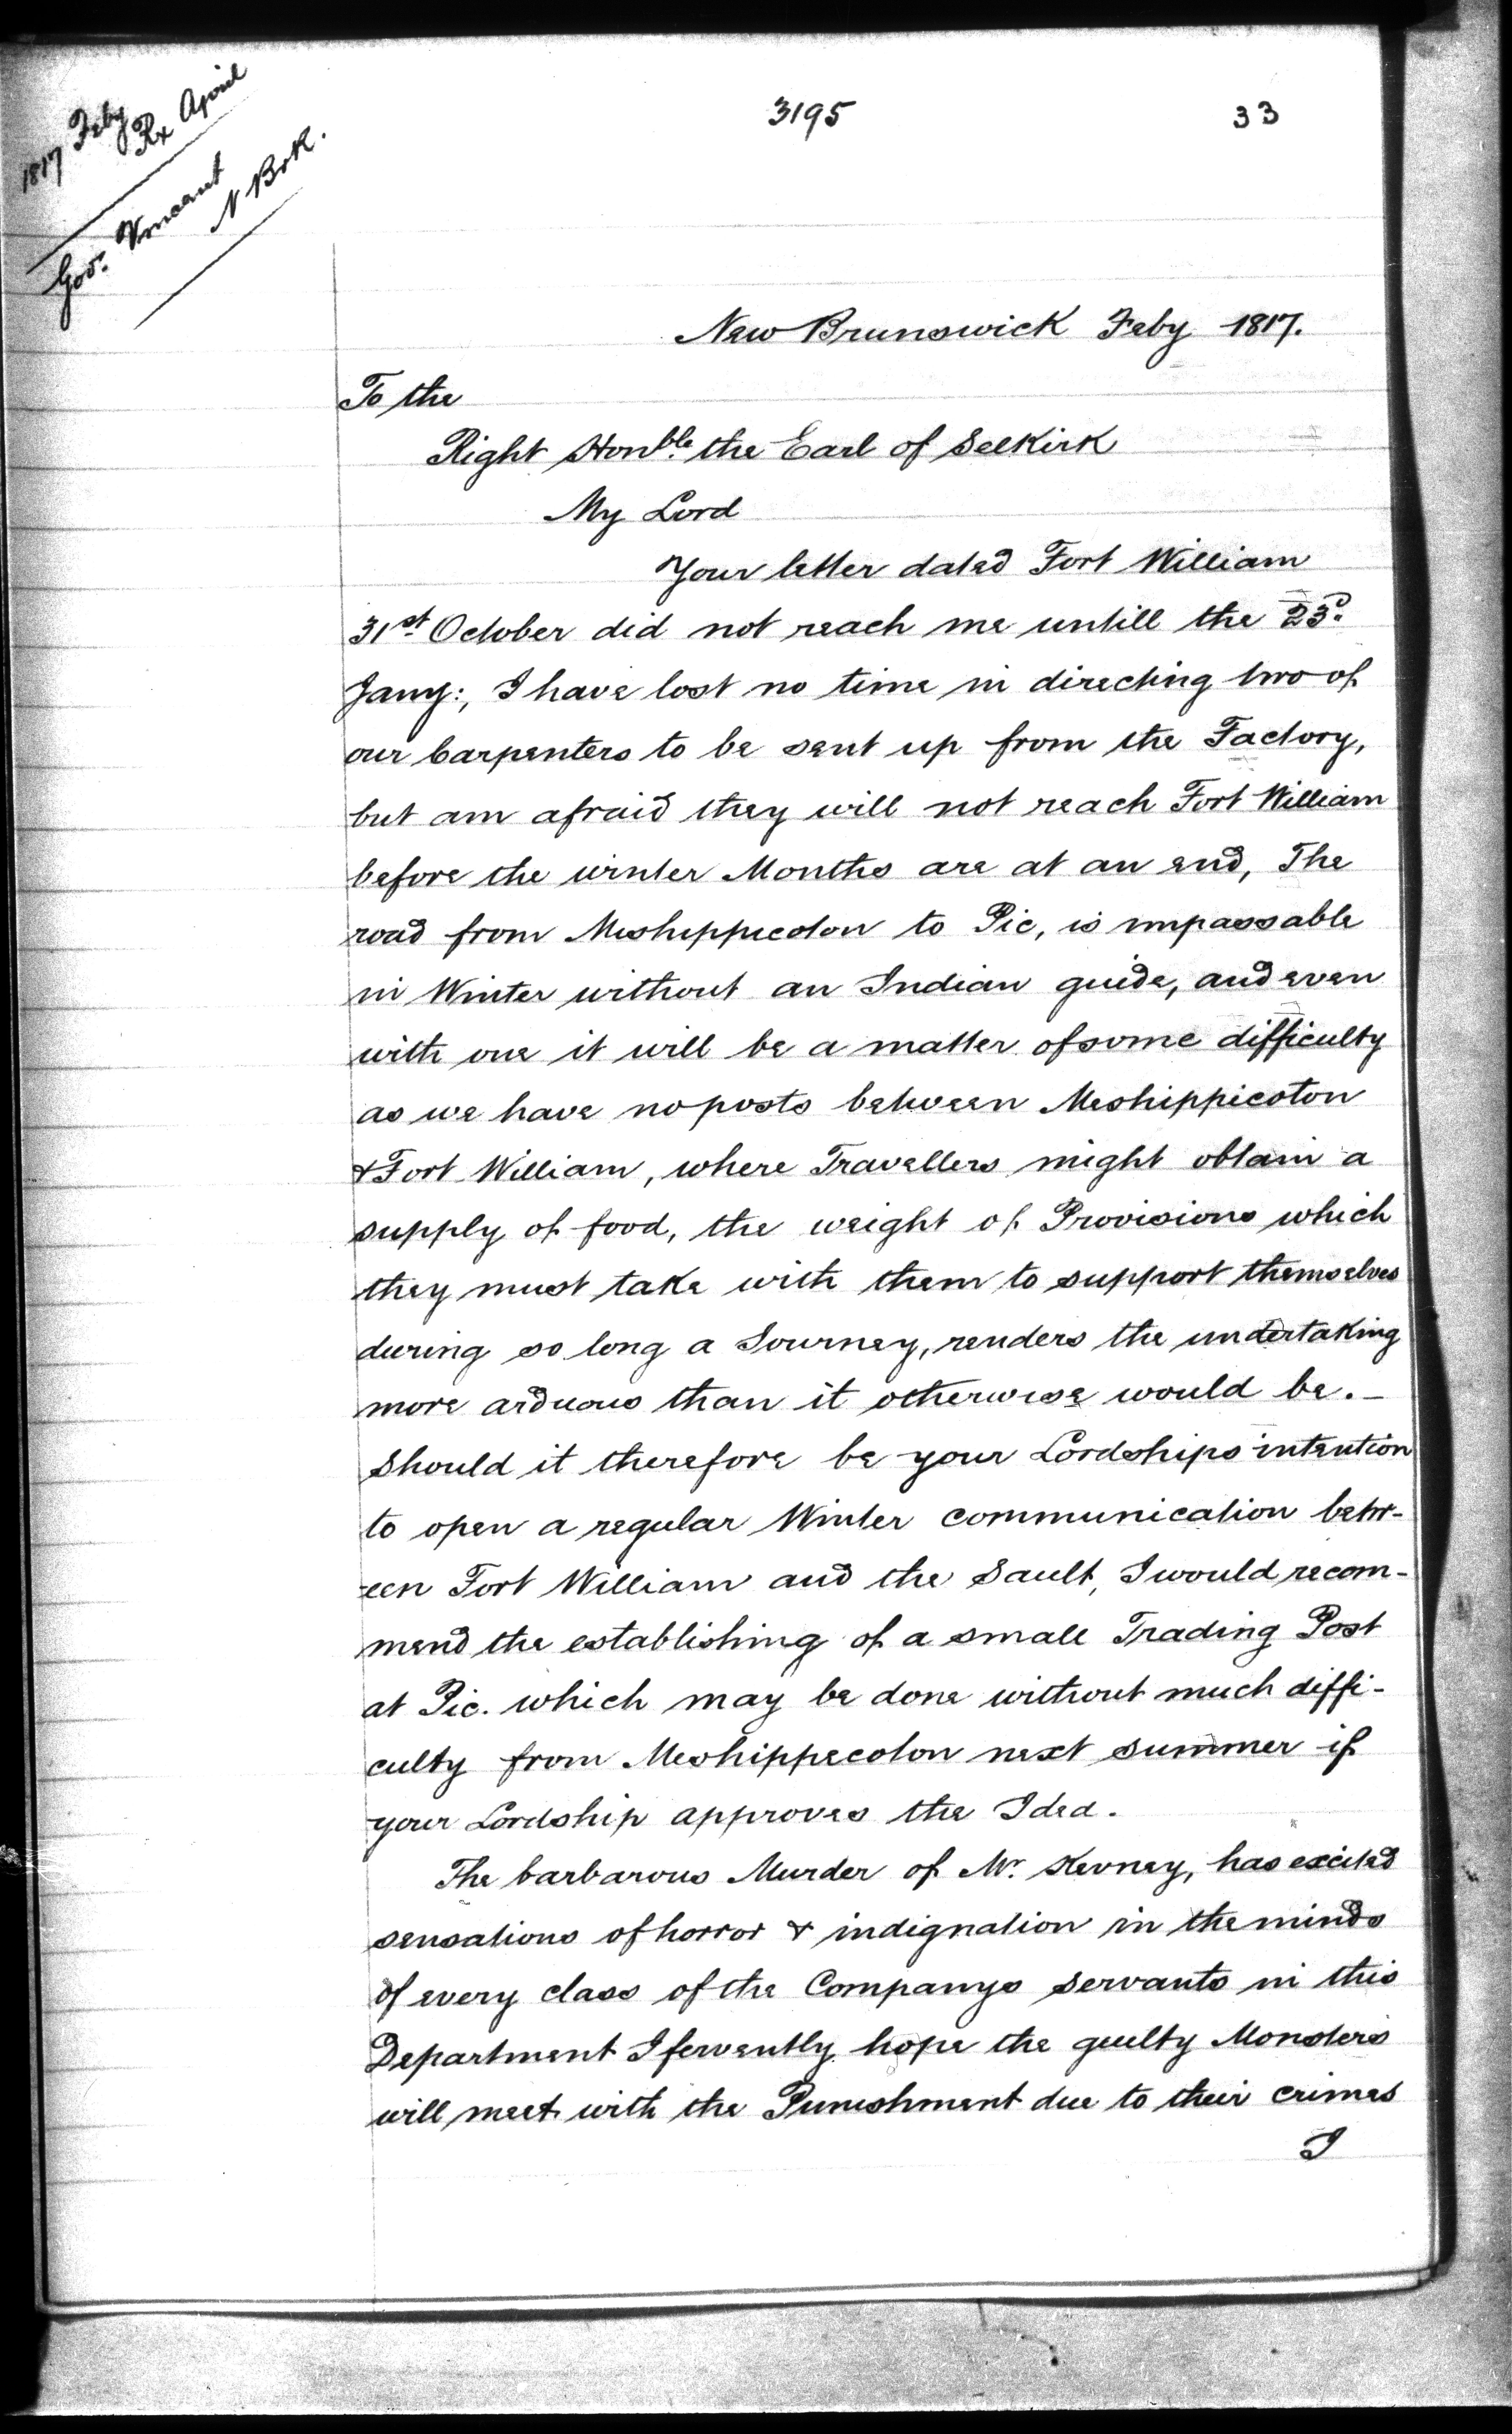 3195
33
1817 Feby
Rx April
Govr. Vincent
N Brk.
New Brunswick Feby 1817.
To the
Right Honble. the Earl of Selkirk
My Lord
Your letter dated Fort William
31st. October did not reach me untill the 23d.
Jany:, I have lost no time in directing two of
our Carpenters to be sent up from the Factory,
but am afraid they will not reach Fort William
before the winter Months are at an end, The
road from Meshippecoton to Pic, is impassable
in Winter without an Indian guide, and even
with one it will be a matter of some difficulty
as we have no posts between Meshippicoton
& Fort William, where Travellers might obtain a
supply of food, the weight of Provisions which
they must take with them to support themselves
during so long a Journey, renders the undertaking
more arduous than it otherwise would be. —
Should it therefore be your Lordships intention
to open a regular Winter communication betw-
-een Fort William and the Sault, I would recom-
mend the establishing of a small Trading Post
at Pic. which may be done without much diffi-
culty from Meshippecoton next summer if
your Lordship approves the Idea.
The barbarous Murder of Mr. Kevney, has excited
sensations of horror & indignation in the minds
of every class of the Companys servants in this
Department I fervently hope the guilty Monsters
will meet with the Punishment due to their crimes
I